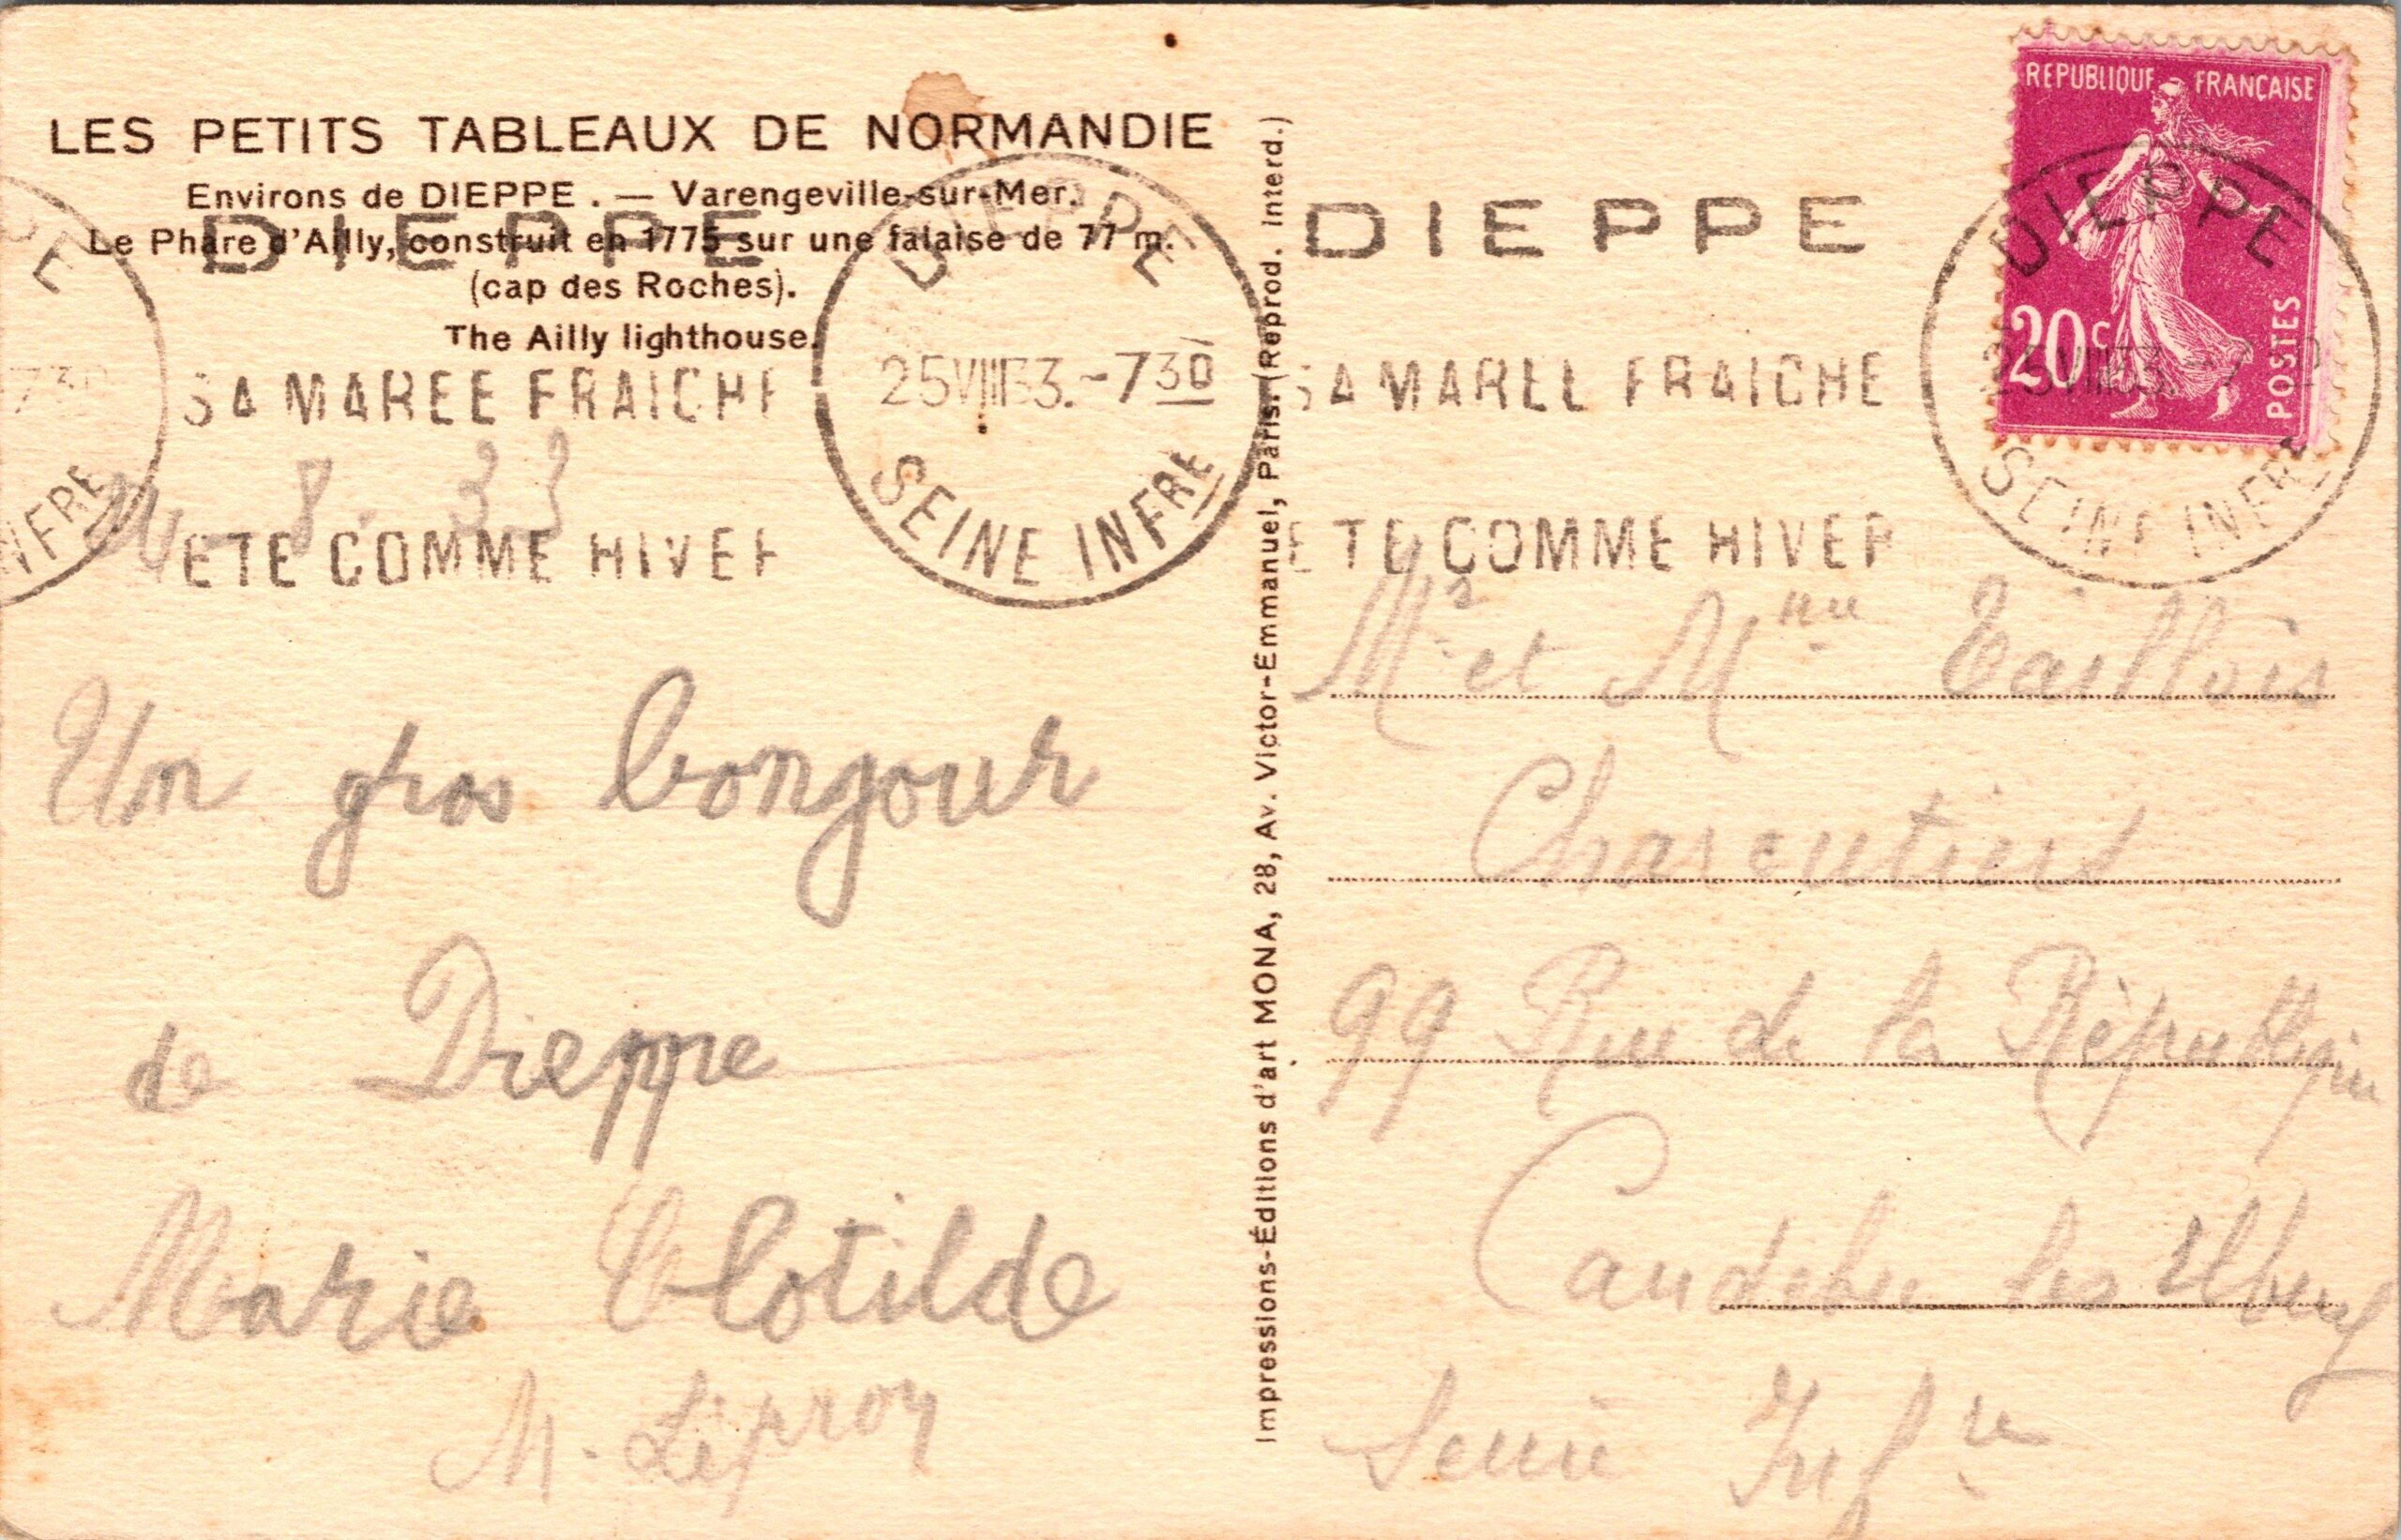 LES PETITS TABLEAUX DE NORMANDIE
Environs de DIEPPE . — Varengeville-sur-Mer.
Le Phare d'Ailly, construit en 1775 sur une falaise de 77 m.
(cap des Roches).
The Ailly lighthouse.
DIEPPE
SA MAREE FRAICHE
ETE COMME HIVER
DIEPPE
25 VIII 33. - 7 30
SEINE INFRE
8. 33
Un gros bonjour
de Dieppe
Marie Clotilde
M.
Impressions-Éditions d'art MONA, 28, Av. Victor-Emmanuel, Paris. (Reprod. Interd.)
DIEPPE
SA MAREE FRAICHE
ETE COMME HIVER
REPUBLIQUE FRANÇAISE
20c
POSTES
DIEPPE
25 VIII 33. - 7
SEINE INFRE
Mr et Mme Taillois
Charcutiers
99 Rue de la République
Caudebec les Elbeuf
Seine Infre